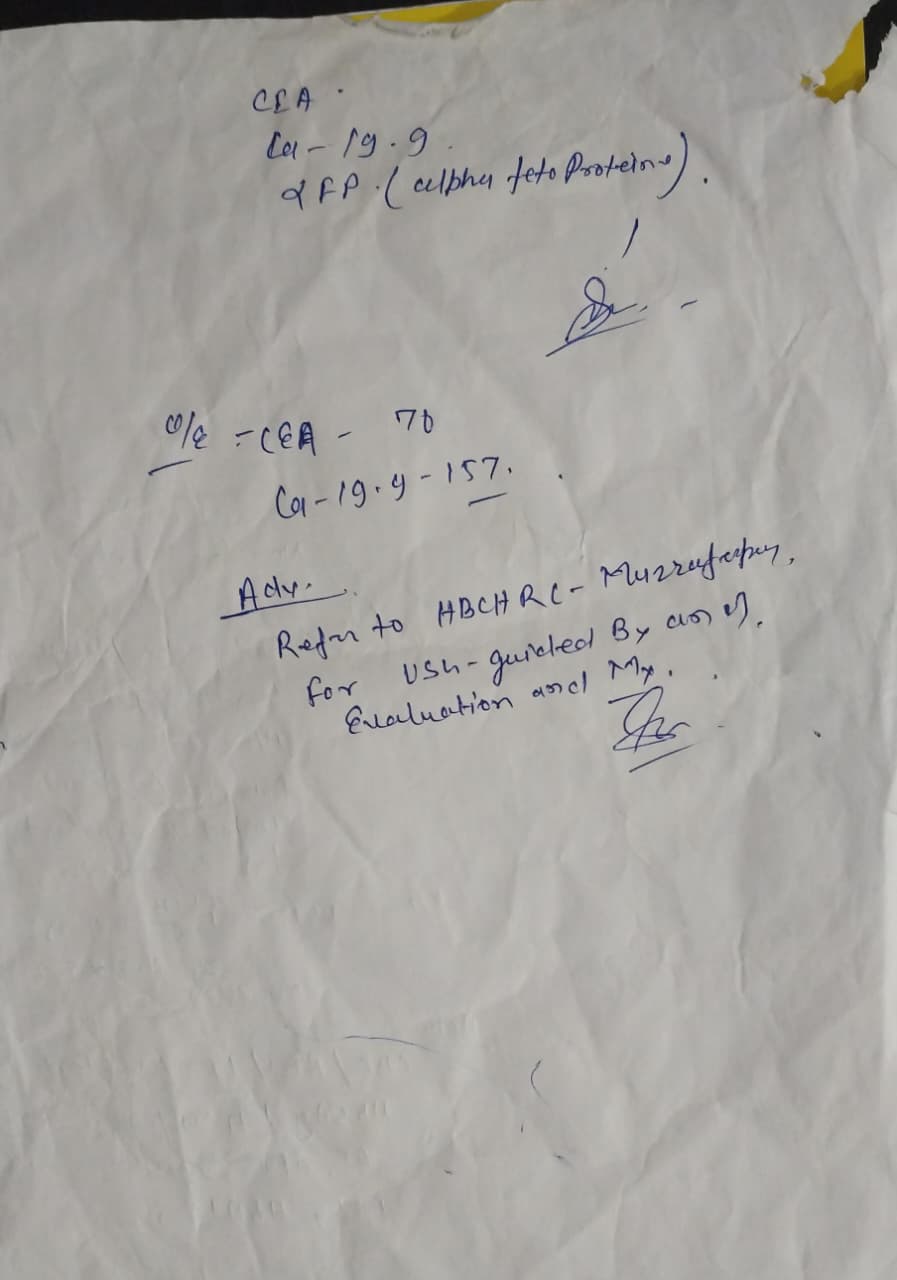 CEA
Ca - 19.9
αFP. (alpha feto Proteine).
O/E = CEA - 70
Ca - 19.9 - 157.
Adv.
Refer to HBCHRC - Muzzafarpur,
for USG - guided
Evaluation and Mx.